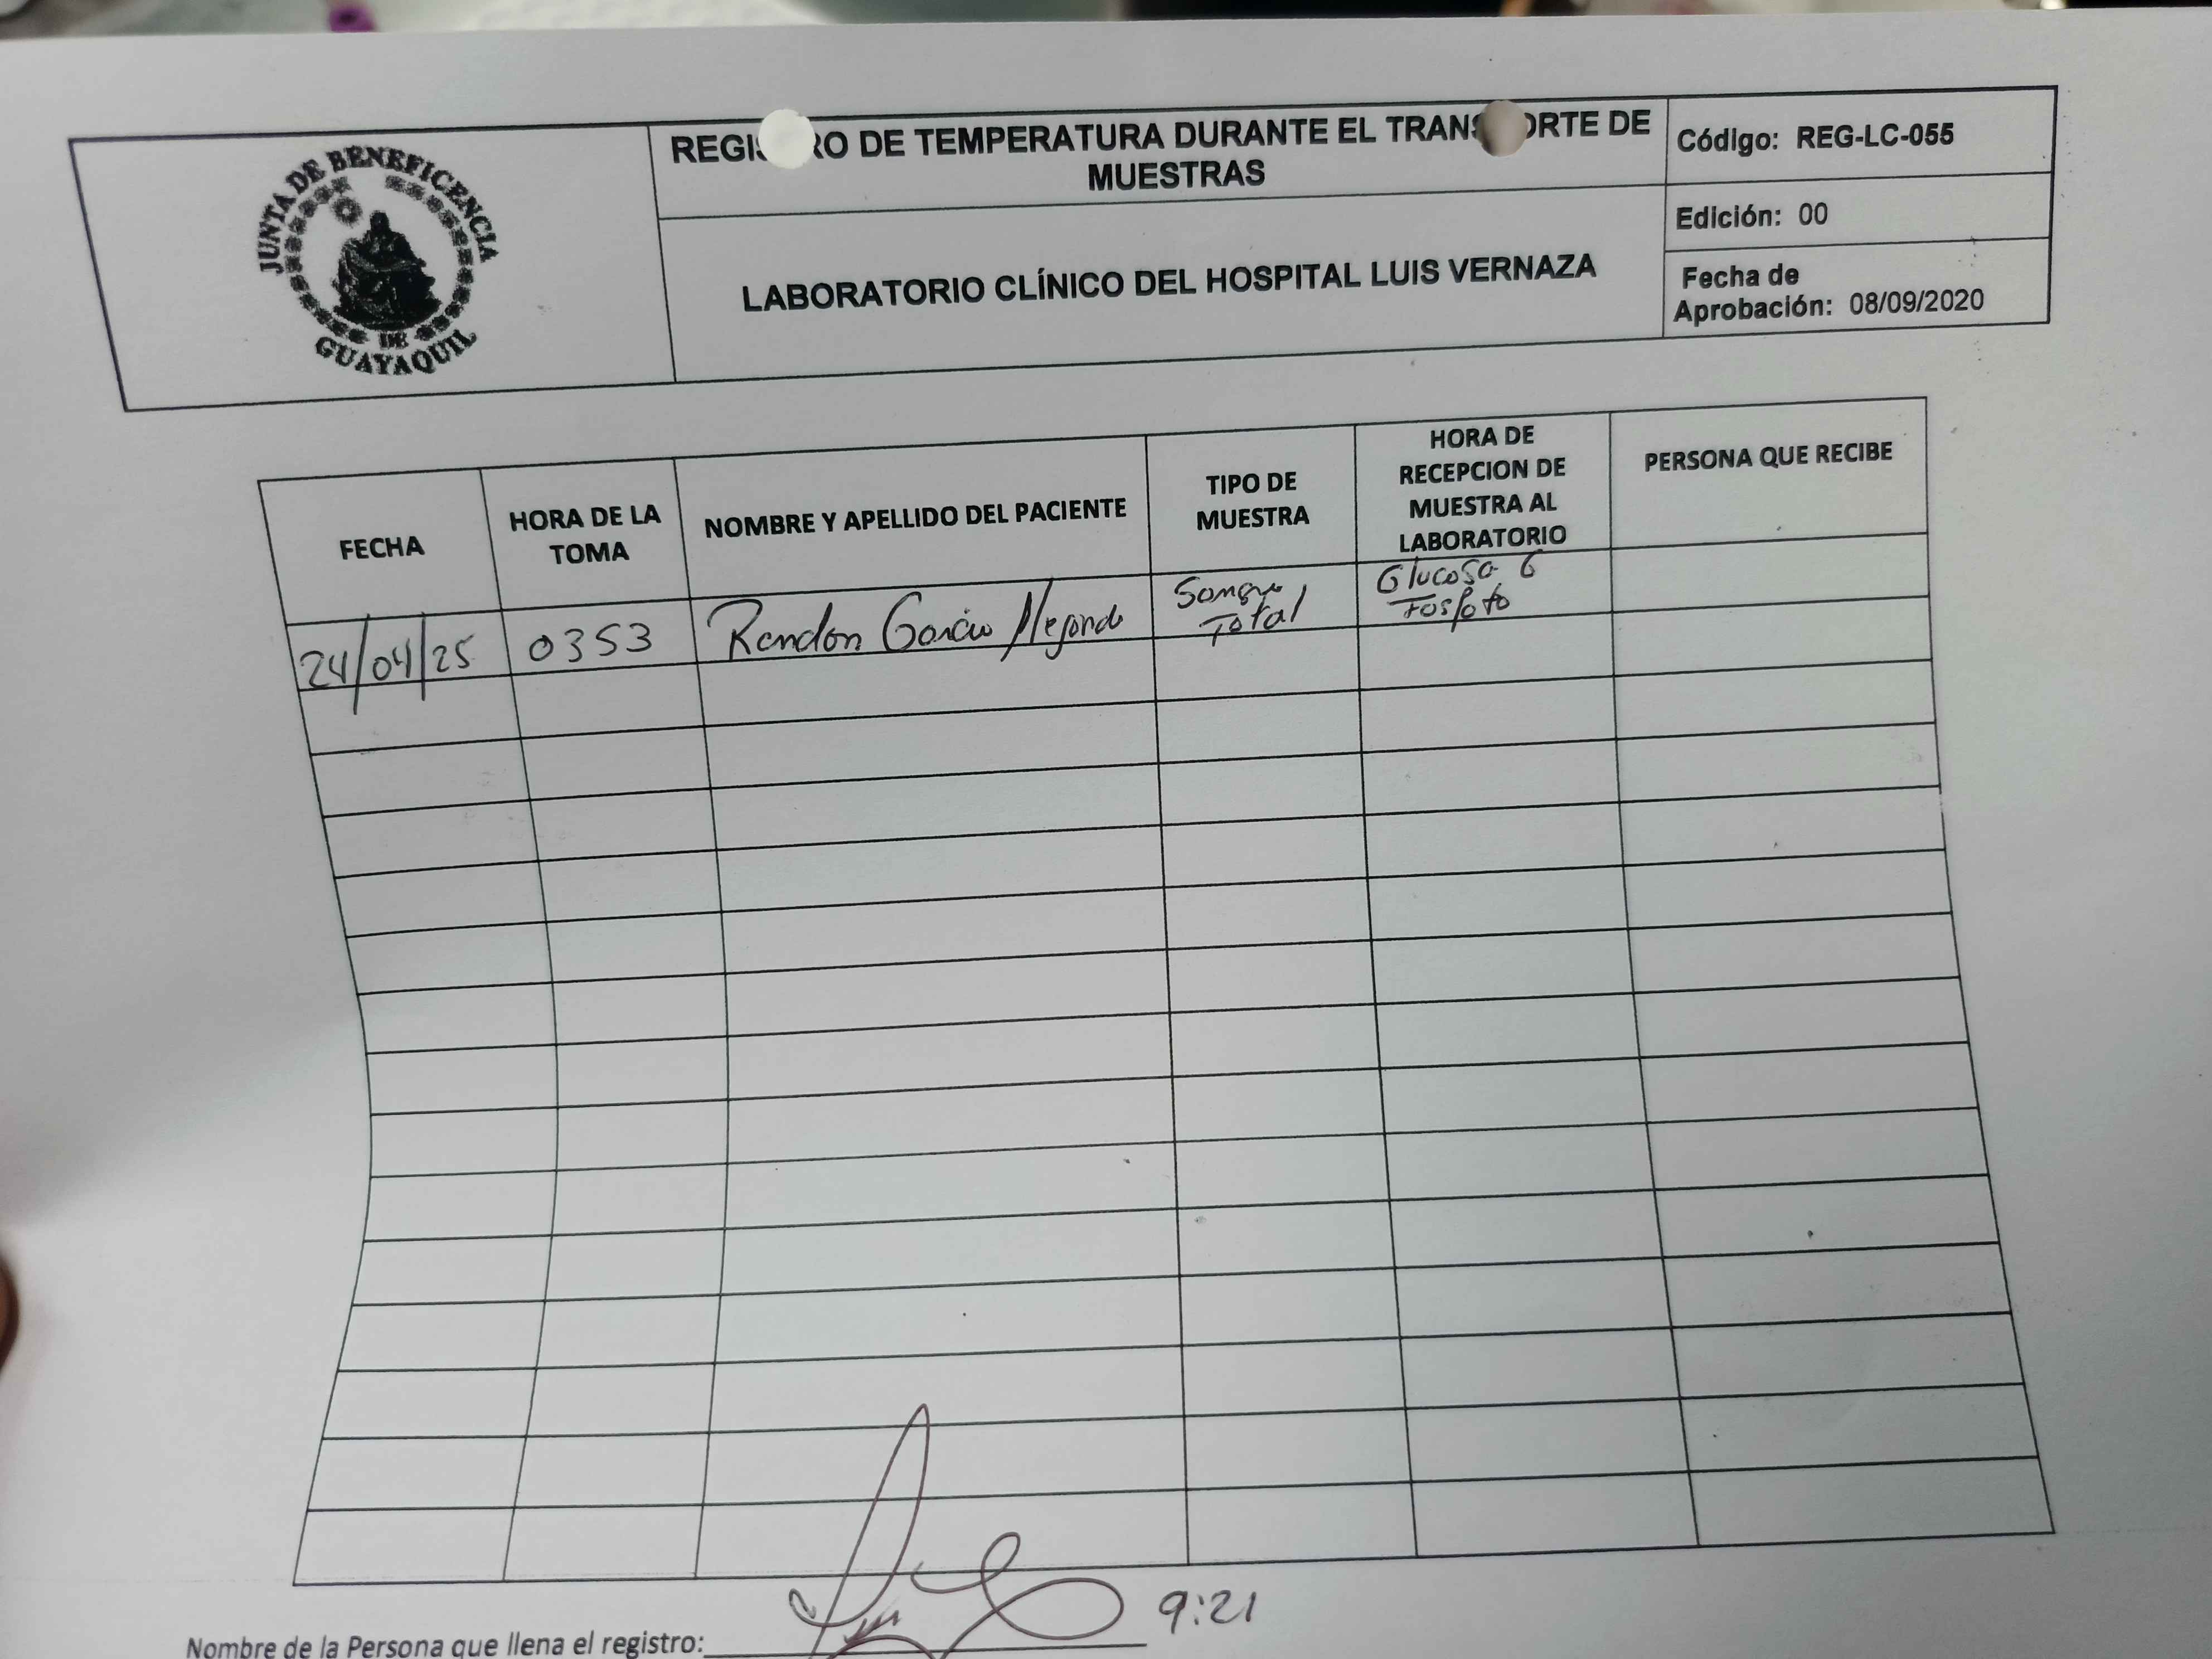 JUNTA DE BENEFICENCIA
DE
GUAYAQUIL
REGIS RO DE TEMPERATURA DURANTE EL TRANS ORTE DE
MUESTRAS
LABORATORIO CLÍNICO DEL HOSPITAL LUIS VERNAZA
Código: REG-LC-055
Edición: 00
Fecha de
Aprobación: 08/09/2020
FECHA
HORA DE LA
TOMA
NOMBRE Y APELLIDO DEL PACIENTE
TIPO DE
MUESTRA
HORA DE
RECEPCION DE
MUESTRA AL
LABORATORIO
PERSONA QUE RECIBE
24/04/25
0353
Rendon Garcia Alejandro
Sangre
Total
Glucosa 6
Fosfato
9:21
Nombre de la Persona que llena el registro: